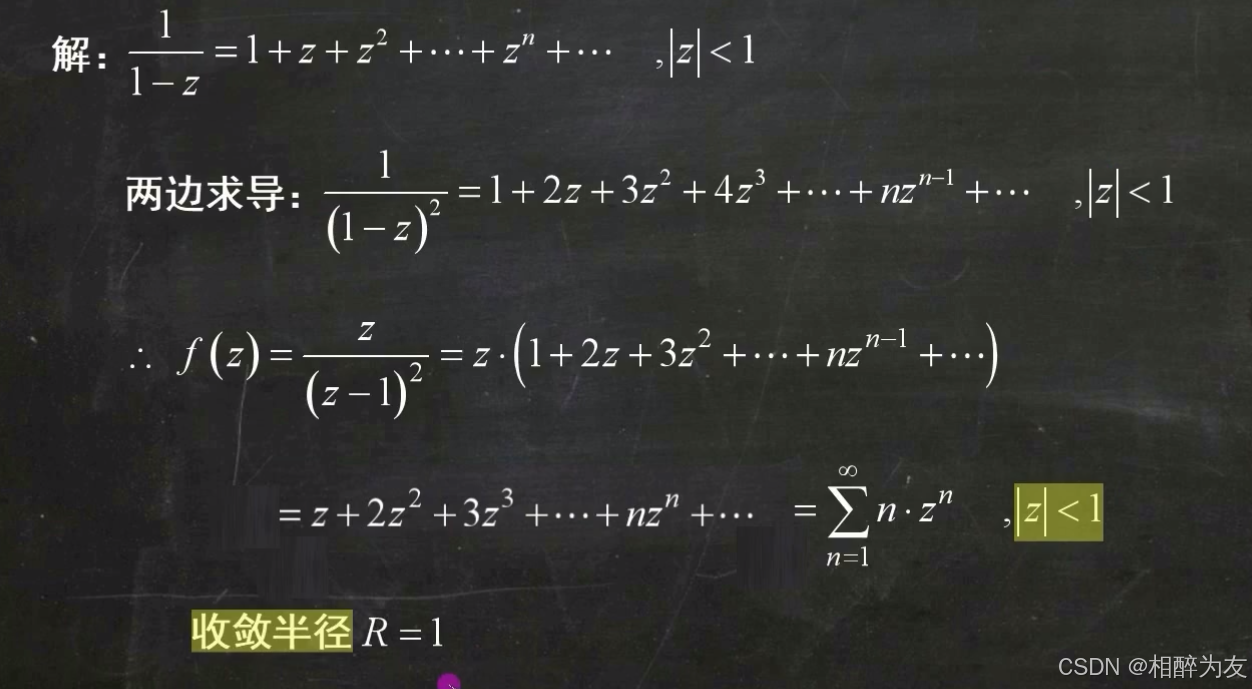 解: 1/(1−z) = 1 + z + z² + ⋯ + zⁿ + ⋯ , |z| < 1
两边求导: 1/(1−z)² = 1 + 2z + 3z² + 4z³ + ⋯ + nzⁿ⁻¹ + ⋯ , |z| < 1
∴ f(z) = z/(z−1)² = z · (1 + 2z + 3z² + ⋯ + nzⁿ⁻¹ + ⋯)
= z + 2z² + 3z³ + ⋯ + nzⁿ + ⋯ = ∑_{n=1}^{∞} n · zⁿ , |z| < 1
收敛半径 R = 1
CSDN @相醉为友